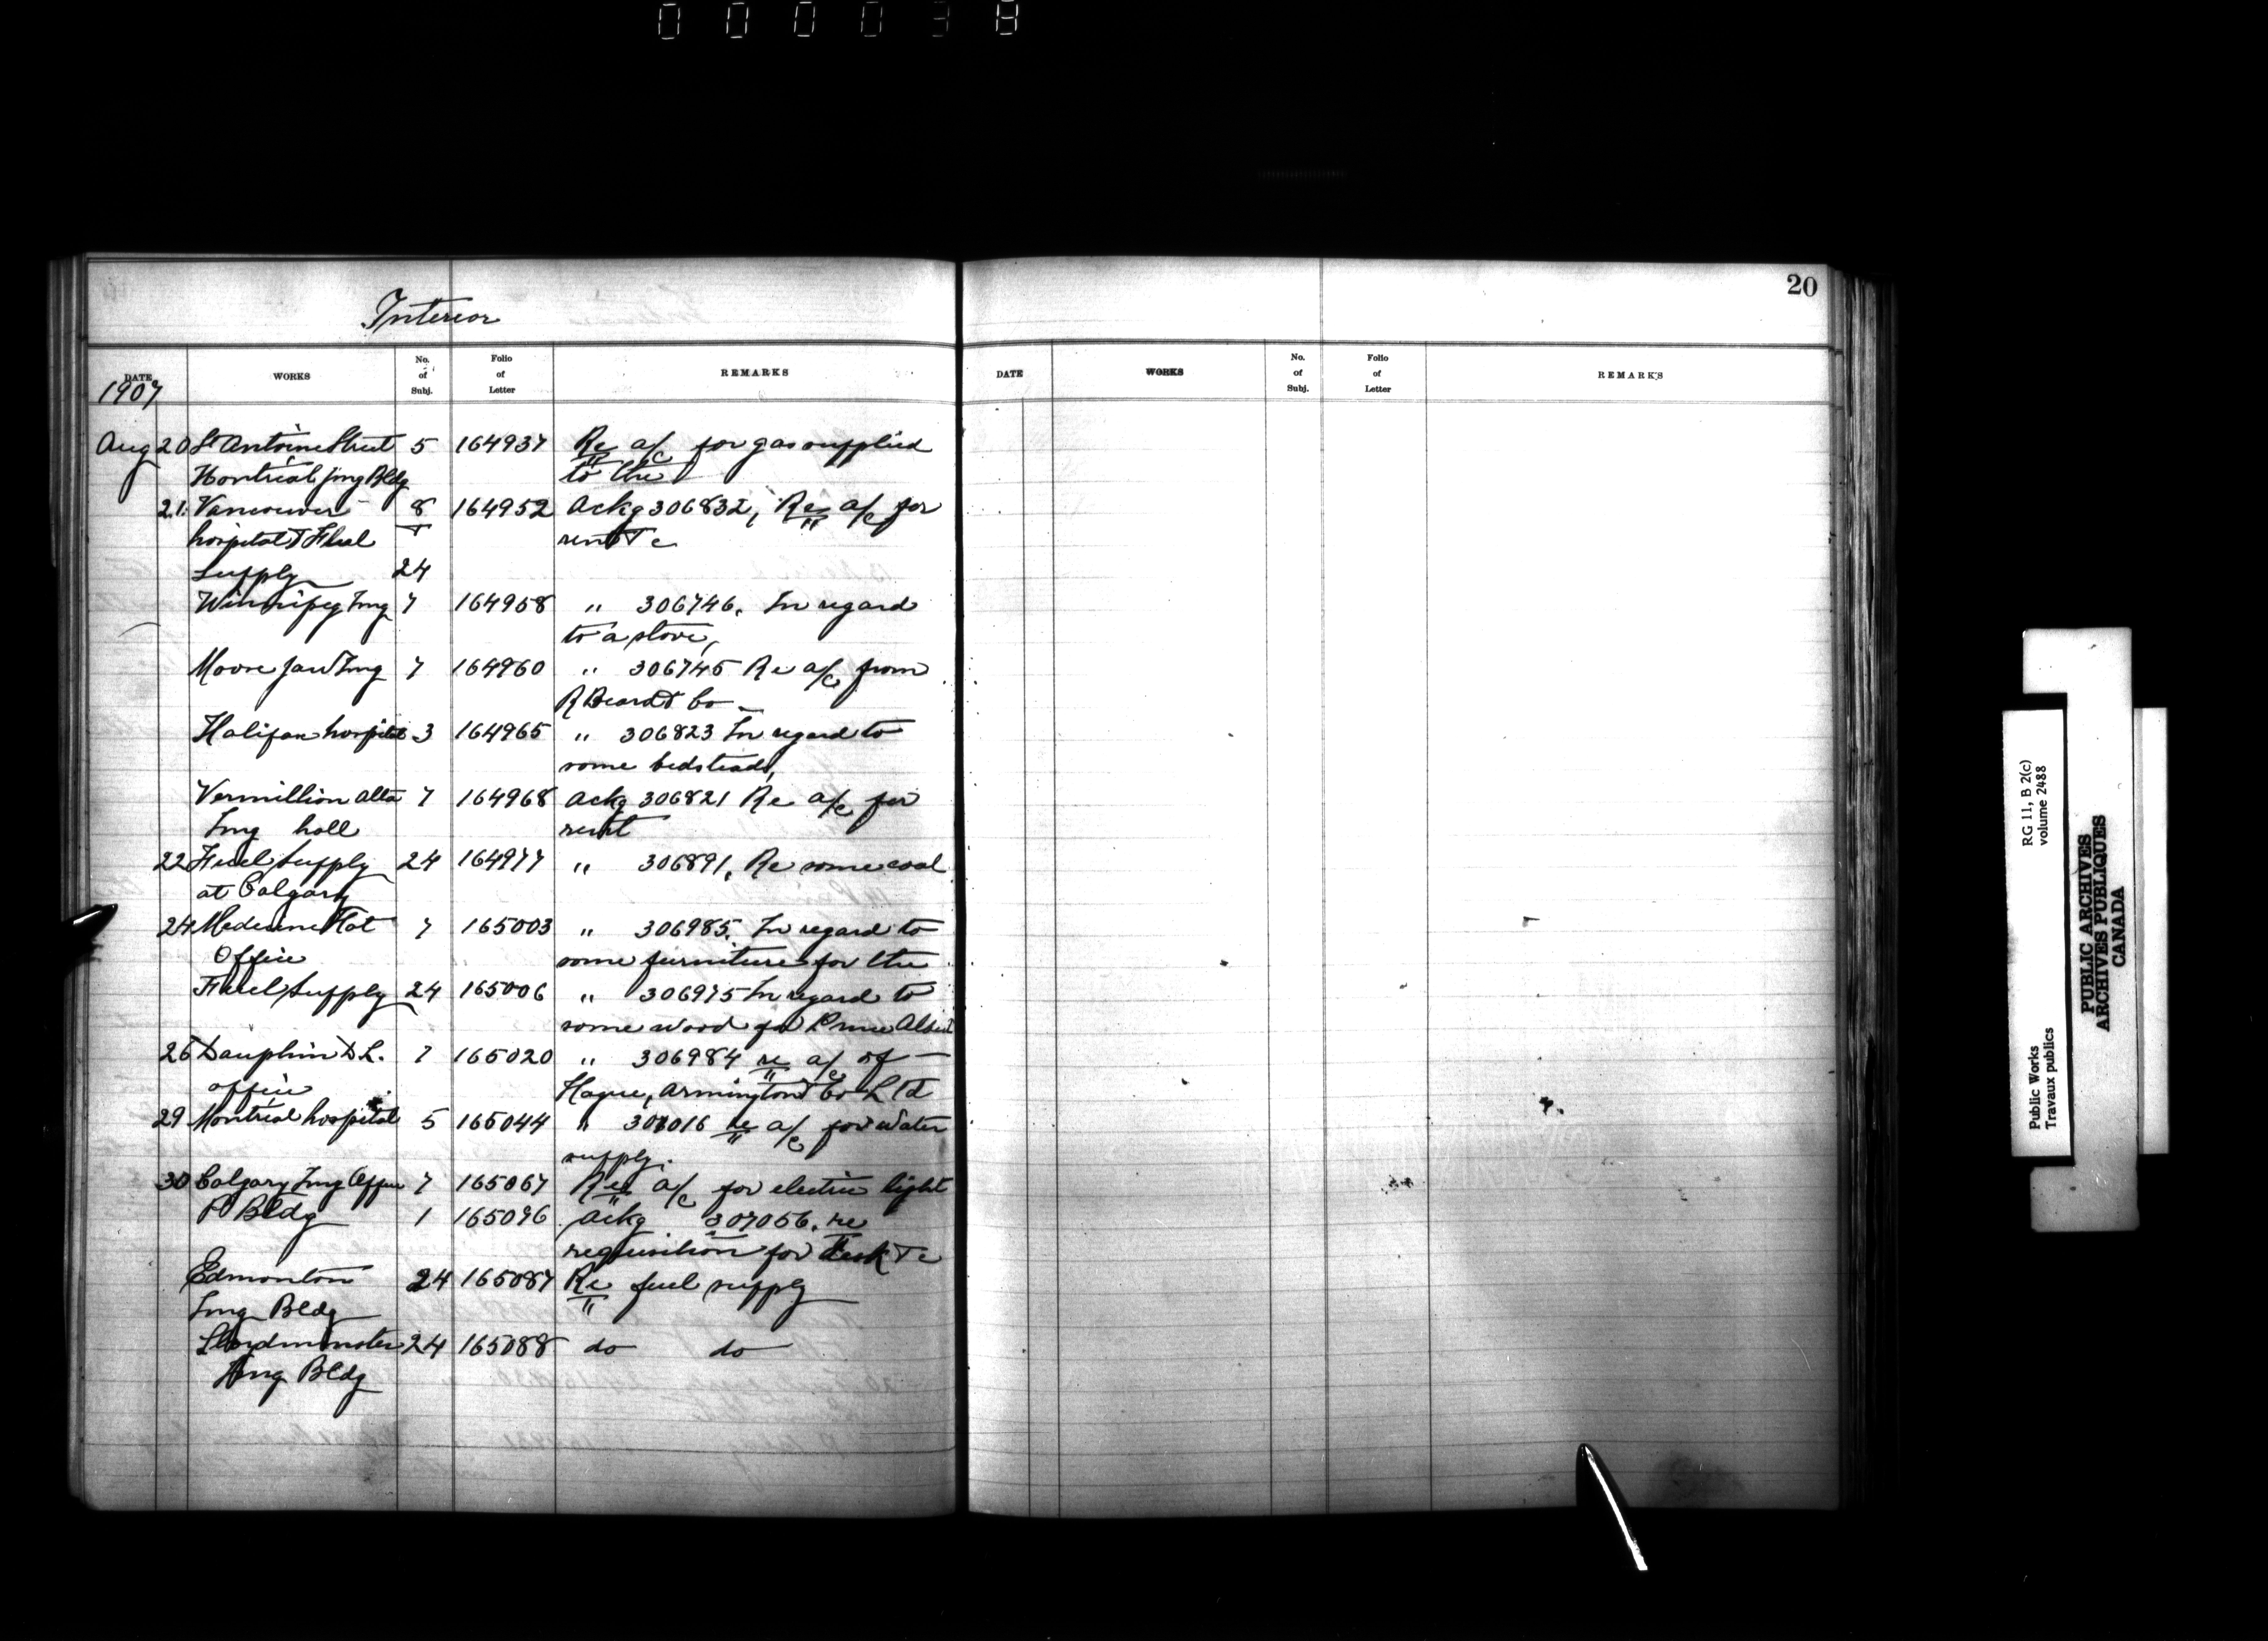 000038
20
Interior
DATE WORKS No. of Subj. Folio of Letter REMARKS
DATE WORKS No. of Subj. Folio of Letter REMARKS
1907
Aug 20 St Antoine Street 5 164937 Re a/c for gas supplied
Montreal Img Bldg to the
21 Vancouver 8 164952 Ackg 306832, Re a/c for
hospital & Fuel & rent &c
Supply 24
Winnipeg Img 7 164958 " 306746. In regard
to a stove,
Moose Jaw Img 7 164960 " 306745 Re a/c from
R Beard & Co
Halifax hospital 3 164965 " 306823 In regard to
some bedsteads,
Vermillion Alta 7 164968 Ackg 306821 Re a/c for
Img hall rent
22 Fuel Supply 24 164977 " 306891, Re some coal
at Calgary
24 Medecine Hat 7 165003 " 306985. In regard to
Office some furniture for the
Fuel Supply 24 165006 " 306975 In regard to
some wood for Prince Albert
26 Dauphin D.L. 7 165020 " 306984 re a/c of
office Hague, Armington & Co Ltd
29 Montreal hospital 5 165044 " 307016 re a/c for water
supply.
30 Calgary Img Office 7 165067 Re a/c for electric light
P Bldg 1 165096 Ackg 307056. re
requisition for desk &c
Edmonton 24 165087 Re fuel supply
Img Bldg
Lloydminster 24 165088 do do
Img Bldg
RG 11, B 2(c)
volume 2488
Public Works
Travaux publics
PUBLIC ARCHIVES
ARCHIVES PUBLIQUES
CANADA